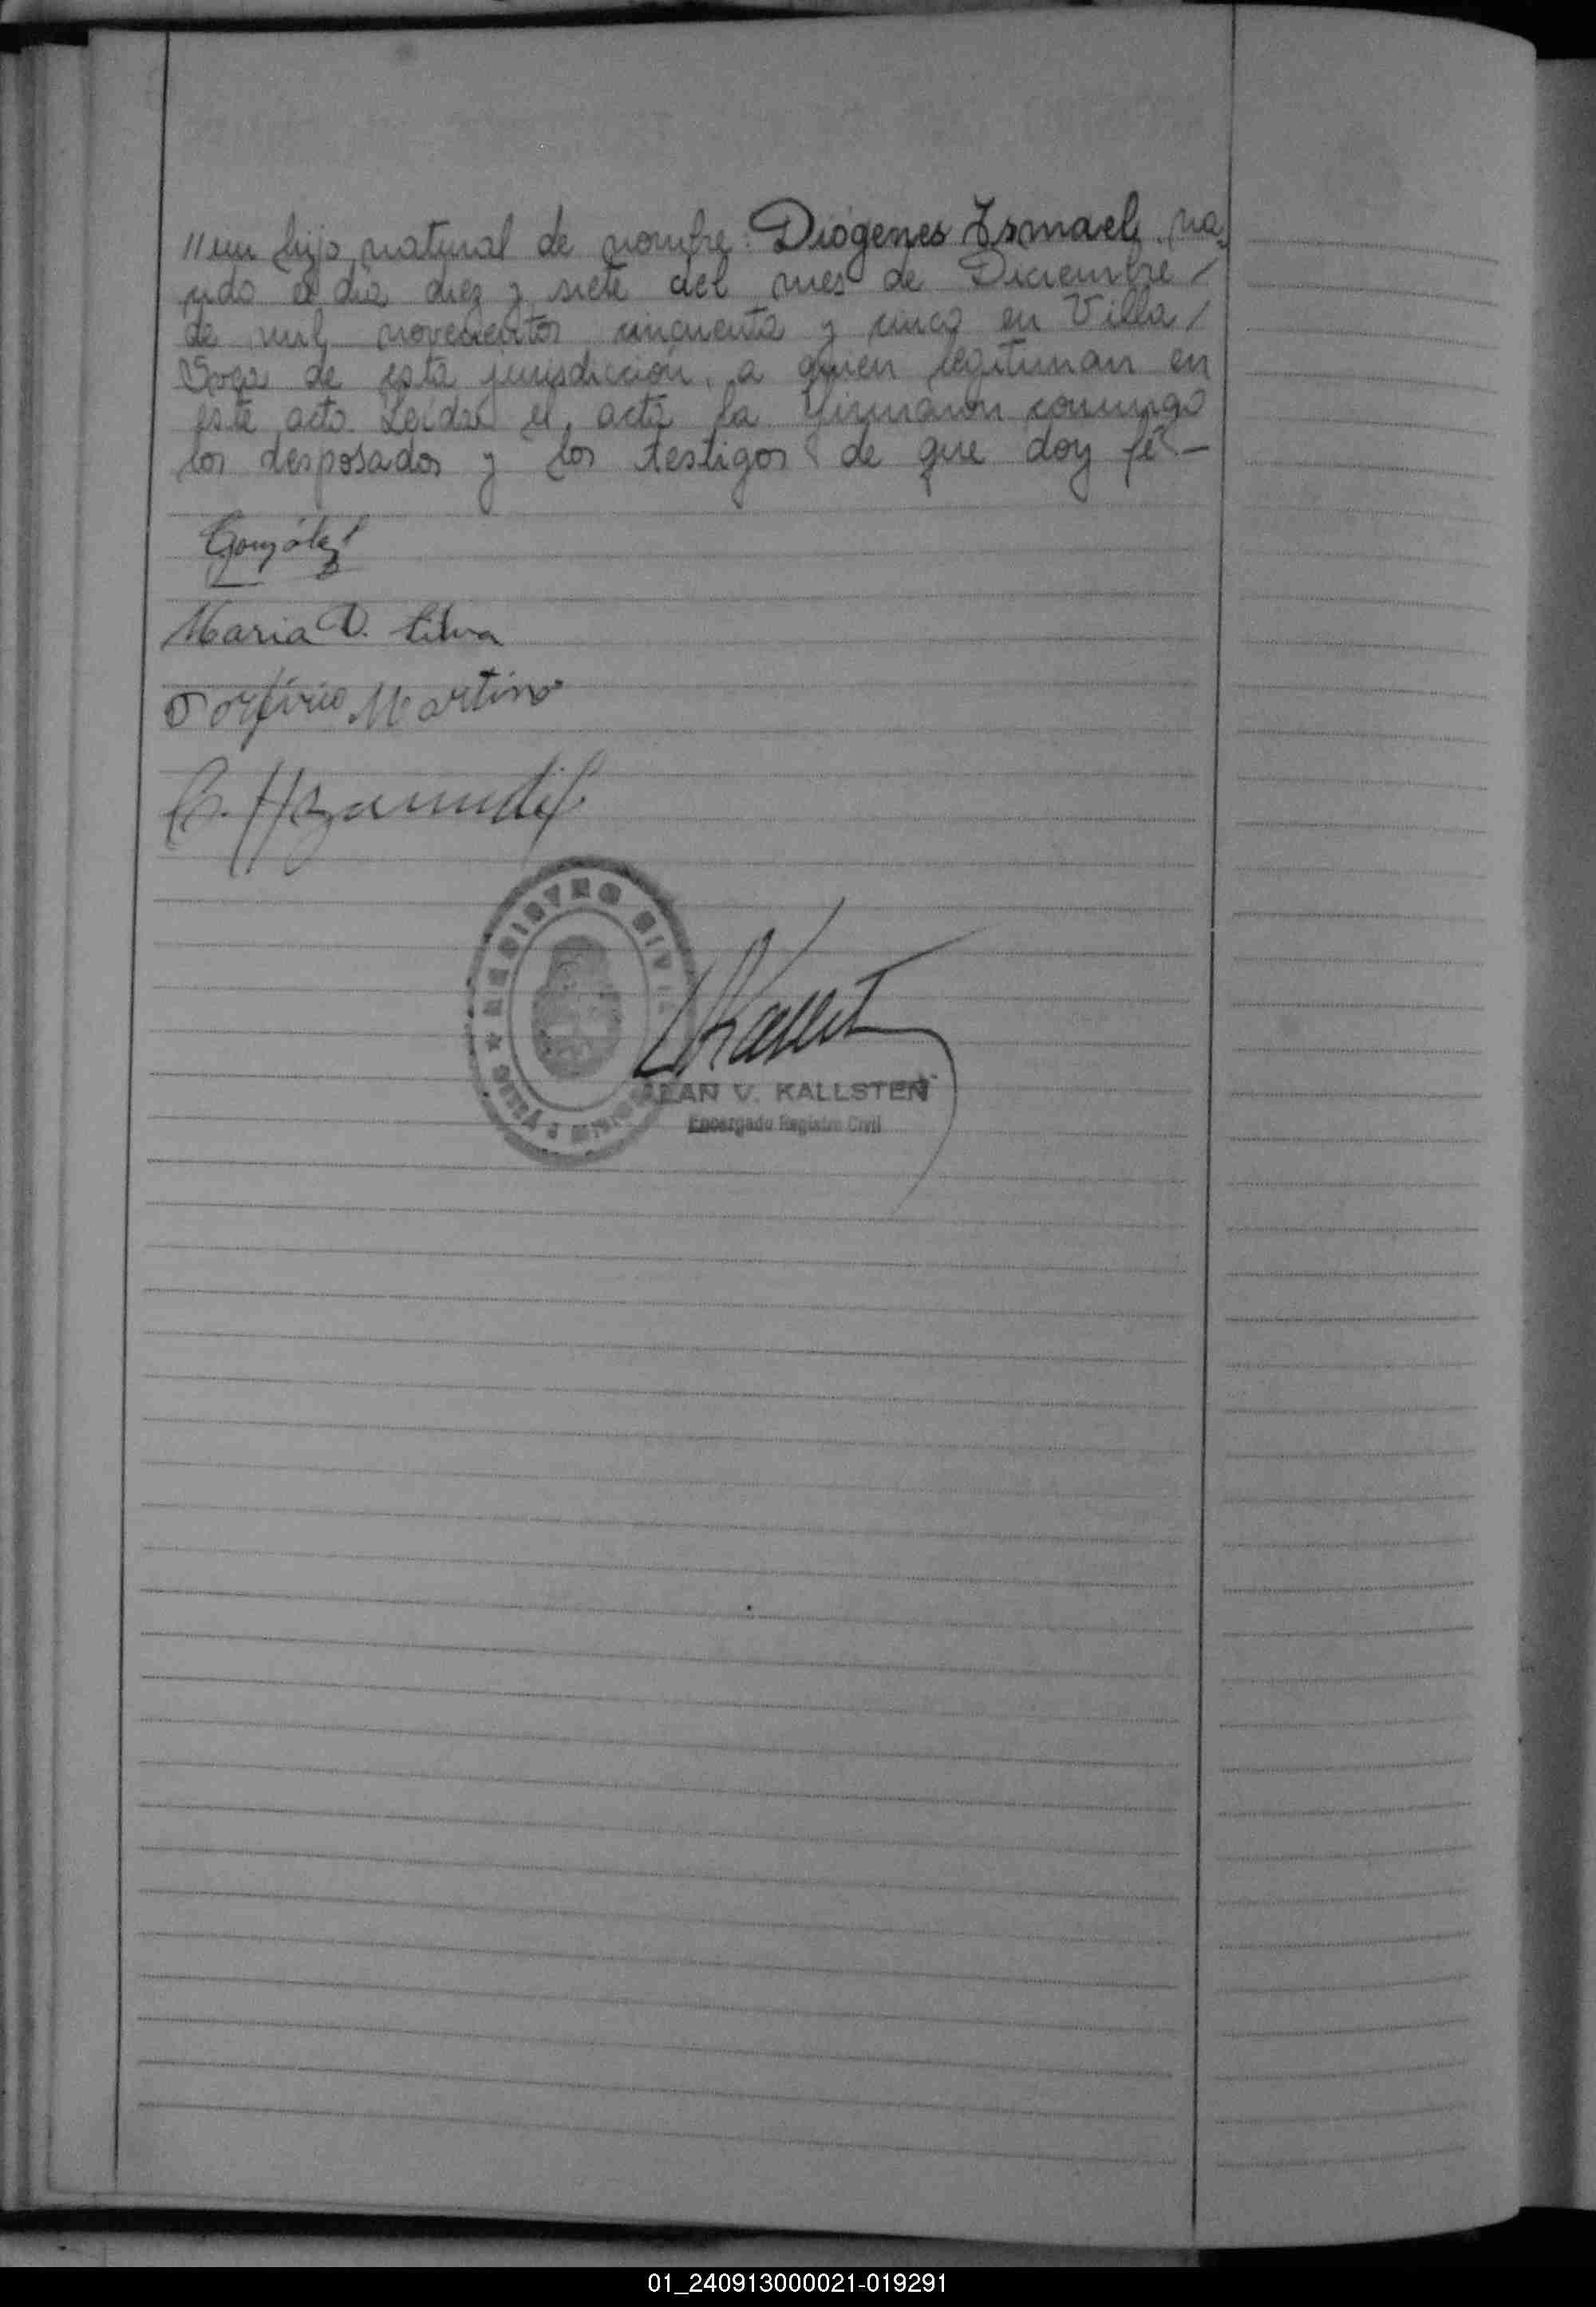 // un hijo natural de nombre: Diógenes Ismael, na-
cido el día diez y siete del mes de Diciembre /
de mil novecientos cincuenta y cinco en Villa /
de esta jurisdicción, a quien legitiman en
este acto. Leída el acta la firmaron conmigo
los desposados y los testigos de que doy fé -
González
Maria D. Silva
Porfirio Martino
REGISTRO CIVIL
ALAN V. KALLSTEN
Encargado Registro Civil
01_240913000021-019291